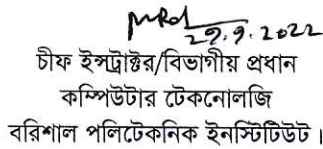 29.9.2022
চীফ ইন্সট্রাক্টর/বিভাগীয় প্রধান
কম্পিউটার টেকনোলজি
বরিশাল পলিটেকনিক ইনস্টিটিউট।